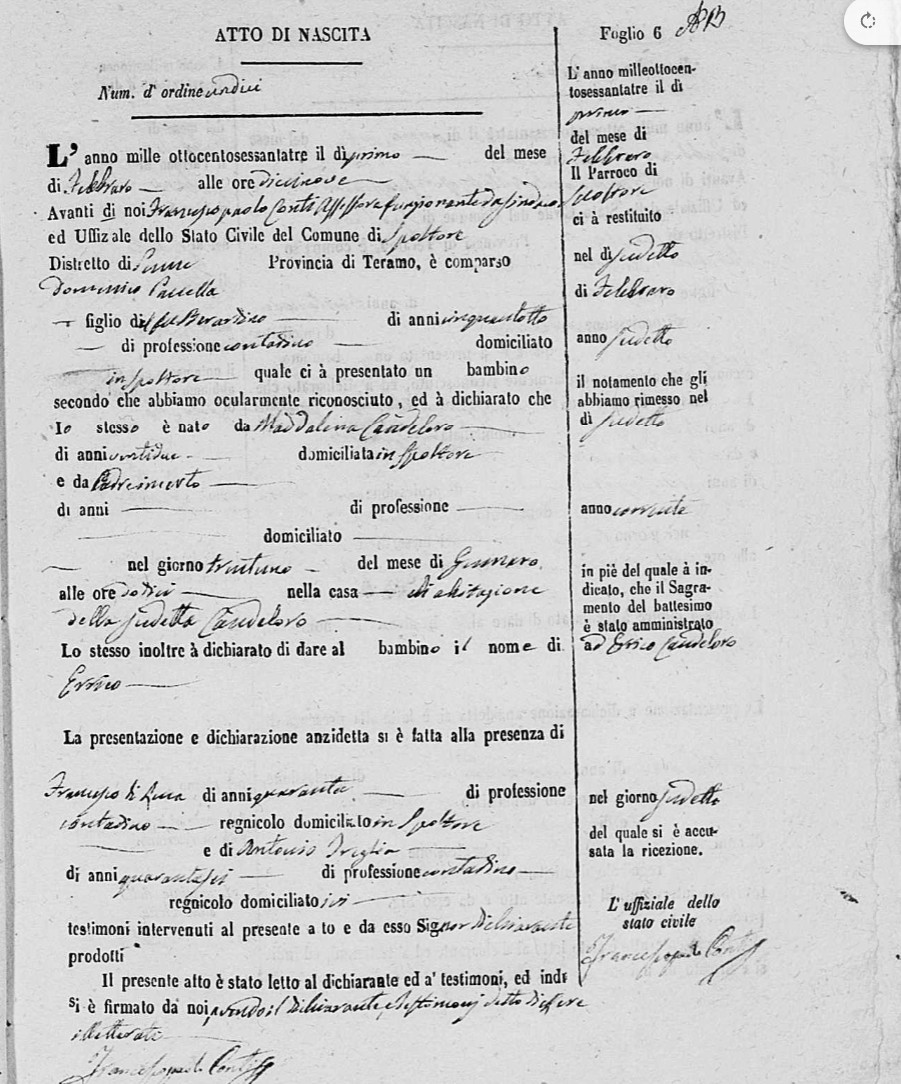 ATTO DI NASCITA
Num. d' ordine undici
L' anno mille ottocentosessantatre il dì primo del mese
di Febbraro alle ore diecinove
Avanti di noi Francesco paolo Conti Assessore funzionante da Sindaco
ed Uffizale dello Stato Civile del Comune di Spoltore
Distretto di Penne Provincia di Teramo, è comparso
Domenico
figlio del fu Berardino di anni cinquantotto
di professione contadino domiciliato
in Spoltore quale ci à presentato un bambino
secondo che abbiamo ocularmente riconosciuto, ed à dichiarato che
lo stesso è nato da Maddalena Candeloro
di anni ventidue domiciliata in Spoltore
e da Padre incerto
di anni di professione
domiciliato
nel giorno trentuno del mese di Gennaro
alle ore dodici nella casa di abitazione
della sudetta Candeloro
Lo stesso inoltre à dichiarato di dare al bambino il nome di
Errico
La presentazione e dichiarazione anzidetta si è fatta alla presenza di
Francesco di Luca di anni quaranta di professione
contadino regnicolo domiciliato in Spoltore
e di Antonio
di anni quarantasei di professione contadino
regnicolo domiciliato ivi
testimoni intervenuti al presente a to e da esso Signor Dichiarante
prodotti
Il presente atto è stato letto al dichiarante ed a' testimoni, ed indi
si è firmato da noi avendo il Dichiarante, e testimonj detto di essere
illetterati
Francesco paolo Conti
Foglio 6
L'anno milleottocen-
tosessantatre il dì
primo
del mese di
Febbraro
Il Parroco di
Spoltore
ci à restituito
nel dì sudetto
di Febbraro
anno sudetto
il notamento che gli
abbiamo rimesso nel
dì sudetto
anno corrente
in piè del quale à in-
dicato, che il Sagra-
mento del battesimo
è stato amministrato
ad Errico Candeloro
nel giorno sudetto
del quale si è accu-
sata la ricezione.
L'uffiziale dello
stato civile
Francesco paolo Conti